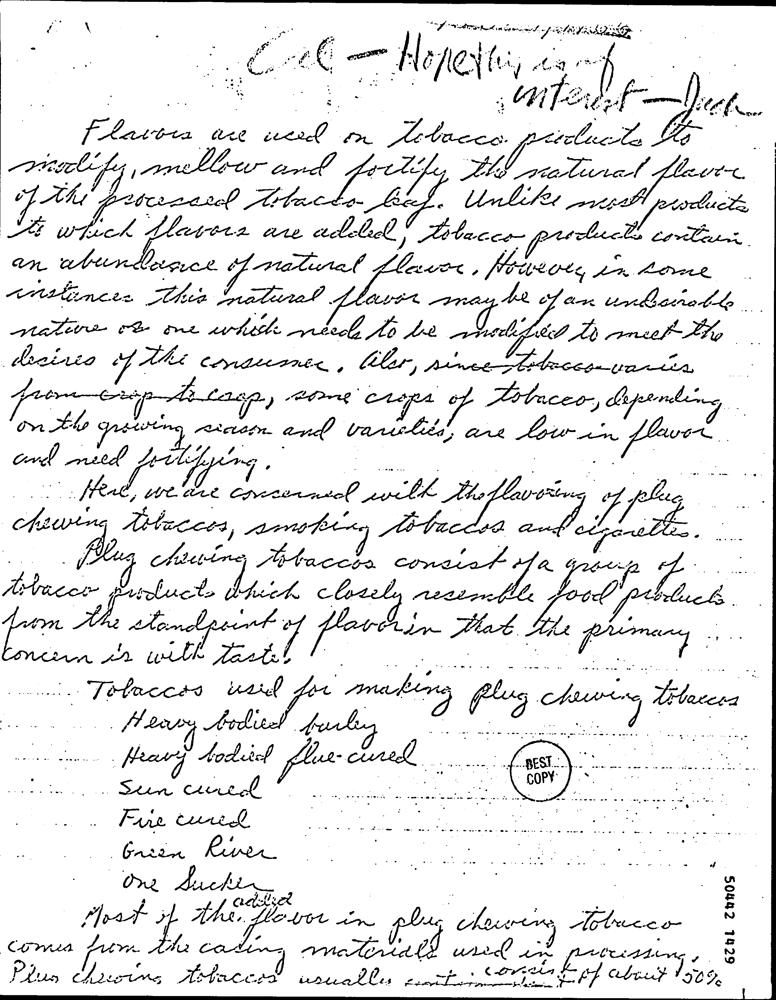 Cal - Hope this is of
interest - Jack
Flavors are used on tobacco products to
modify, mellow and fortify the natural flavor
of the processed tobacco leaf. Unlike most products
to which flavors are added, tobacco products contain
an abundance of natural flavor. However, in some
instances this natural flavor may be of an undesirable
nature or one which needs to be modified to meet the
desires of the consumer. Also, since tobacco varies
from crop to crop, some crops of tobacco, depending
on the growing season and varieties, are low in flavor
and need fortifying.
Here, we are concerned with the flavoring of plug
chewing tobaccos, smoking tobaccos and cigarettes.
Plug chewing tobaccos consist of a group of
tobacco products which closely resemble food products
from the standpoint of flavor in that the primary
concern is with taste.
Tobaccos used for making plug chewing tobaccos
Heavy bodied burley
Heavy bodied flue-cured
Sun cured
BEST
COPY
Fire cured
Green River
One Sucker
added
Most of the flavor in plug chewing tobacco
comes from the casing materials used in processing.
Plug chewing tobaccos usually consist of about 50%
50442 1429